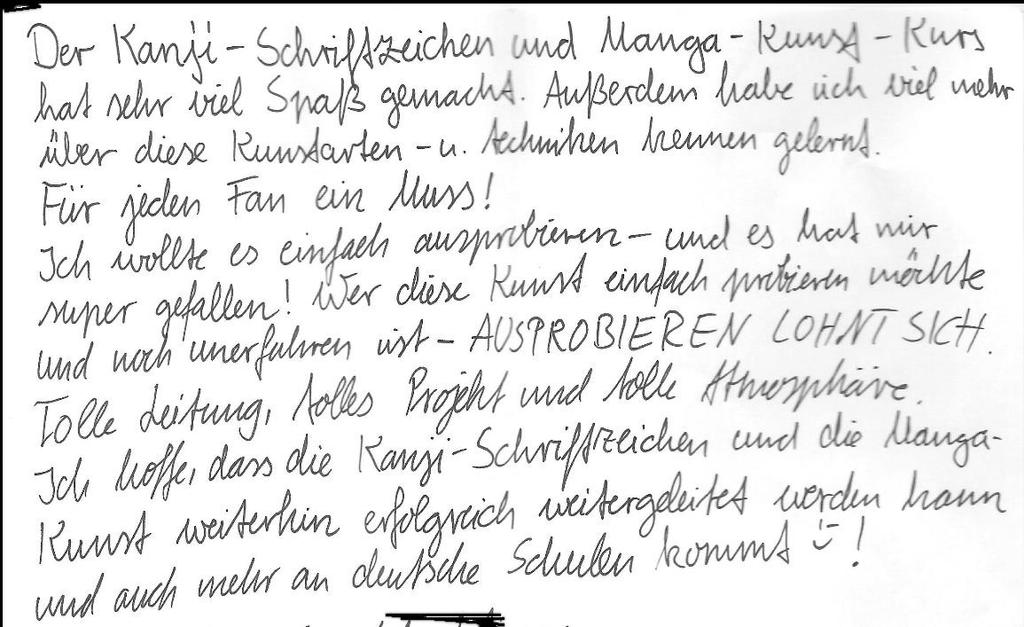 Der Kanji-Schriftzeichen und Manga-Kunst-Kurs
hat sehr viel Spaß gemacht. Außerdem habe ich viel mehr
über diese Kunstarten-u. techniken kennen gelernt.
Für jeden Fan ein Muss!
Ich wollte es einfach ausprobieren – und es hat mir
super gefallen! Wer diese Kunst einfach probieren möchte
und noch unerfahren ist – AUSPROBIEREN LOHNT SICH.
Tolle Leitung, tolles Projekt und tolle Atmosphäre.
Ich hoffe, dass die Kanji-Schriftzeichen und die Manga-
Kunst weiterhin erfolgreich weitergeleitet werden kann
und auch mehr an deutsche Schulen kommt :-) !